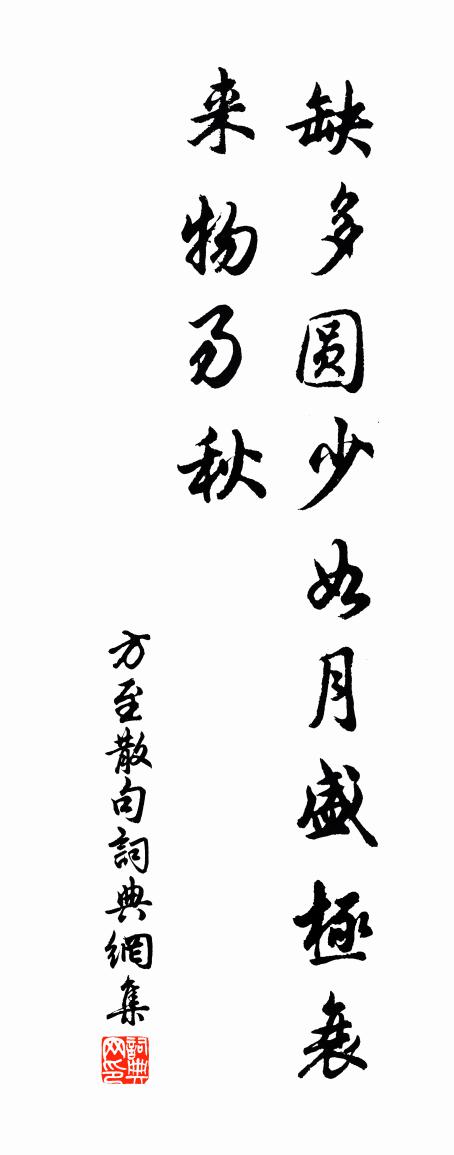 缺多圓少如月盛極衰
来物易秋
方至散句詞典網集
詞典网印